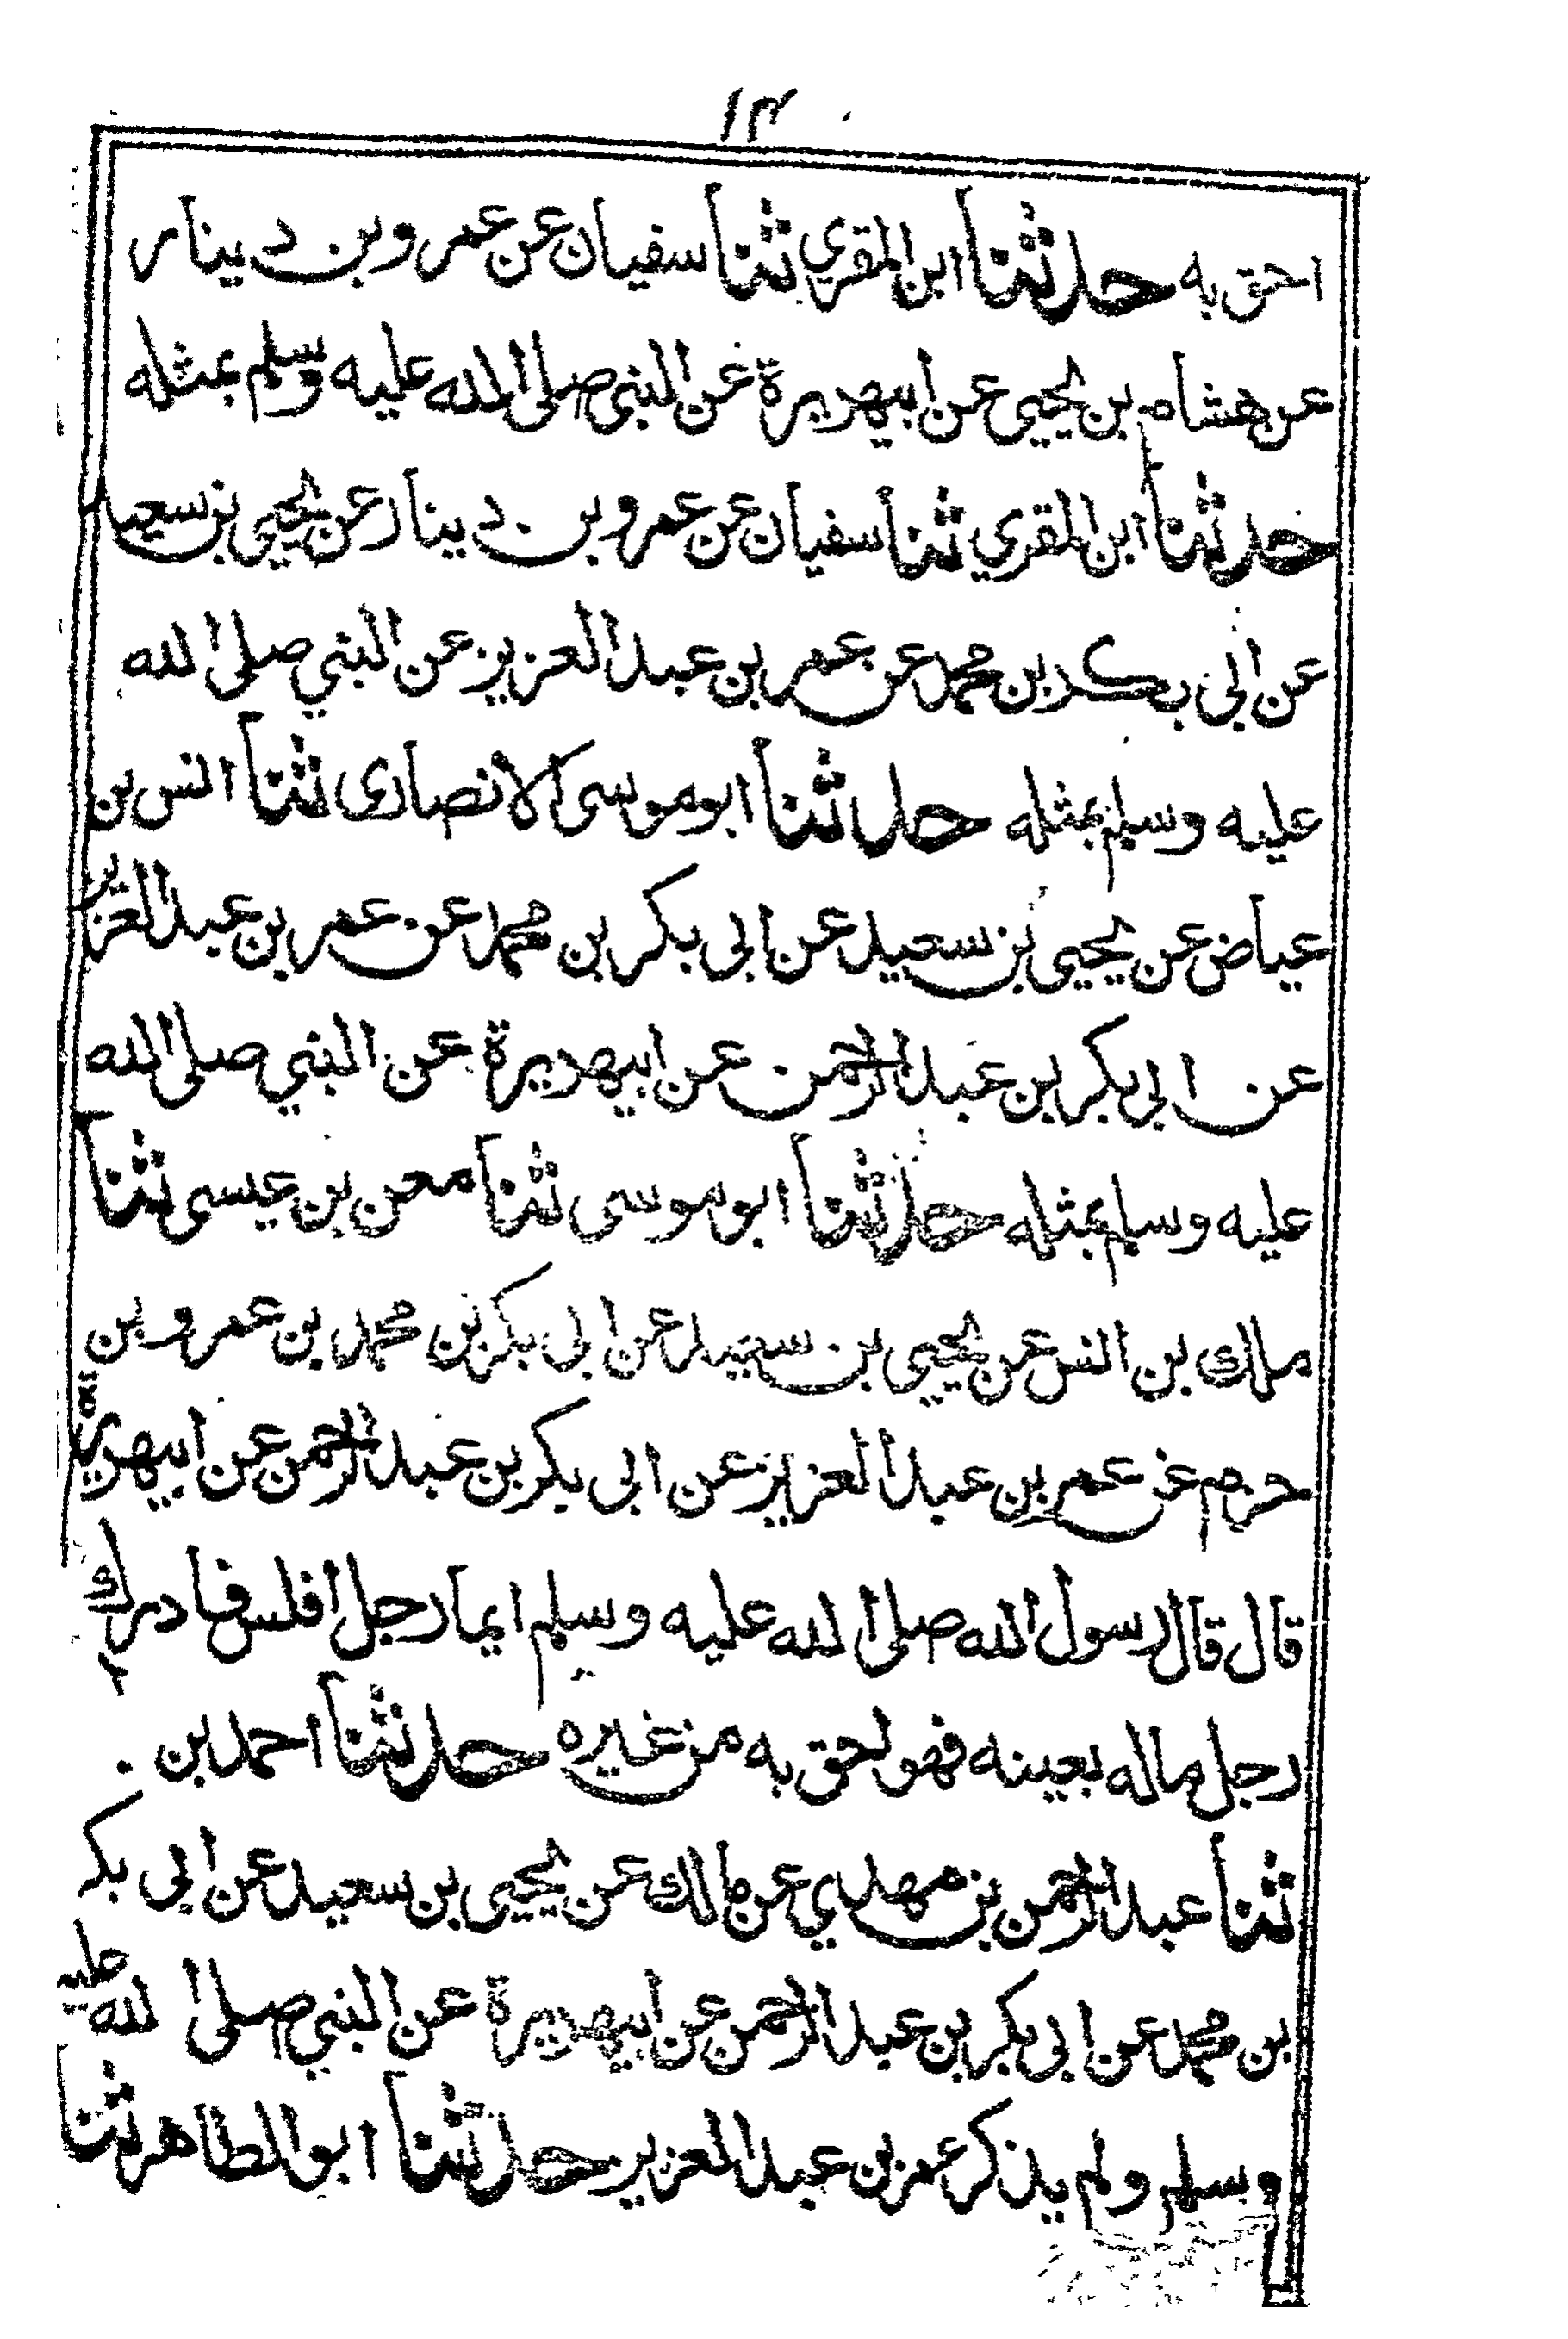 ١٣
احق به حدثنا ابن المقري ثنا سفيان عن عمرو بن دينار
عن هشام بن يحيى عن ابيهريرة عن النبي صلى الله عليه وسلم بمثله
حدثنا ابن المقري ثنا سفيان عن عمرو بن دينار عن يحيى بن سعيد
عن ابي بكر بن محمد عن عمر بن عبد العزيز عن النبي صلى الله
عليه وسلم بمثله حدثنا ابو موسى الانصارى ثنا انس بن
عياض عن يحيى بن سعيد عن ابي بكر بن محمد عن عمر بن عبد العزيز
عن ابي بكر بن عبد الرحمن عن ابيهريرة عن النبي صلى الله
عليه وسلم بمثله حدثنا ابو موسى ثنا معن بن عيسى ثنا
ملك بن انس عن يحيى بن سعيد عن ابي بكر بن محمد بن عمرو بن
حزم عن عمر بن عبد العزيز عن ابي بكر بن عبد الرحمن عن ابيهريرة
قال قال رسول الله صلى الله عليه وسلم ايما رجل افلس فادرك
رجل ماله بعينه فهو احق به من غيره حدثنا احمد بن
ثنا عبد الرحمن بن مهدي عن مالك عن يحيى بن سعيد عن ابي بكر
بن محمد عن ابي بكر بن عبد الرحمن عن ابيهريرة عن النبي صلى الله عليه
وسلم ولم يذكر عمر بن عبد العزيز حدثنا ابو الطاهر ثنا